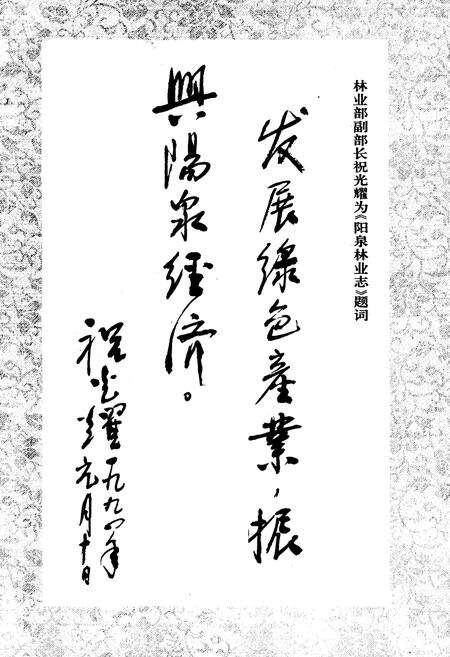 林业部副部长祝光耀为《阳泉林业志》题词
发展绿色產業，振
興陽泉经济。
祝光耀
一九九四年
元月十日